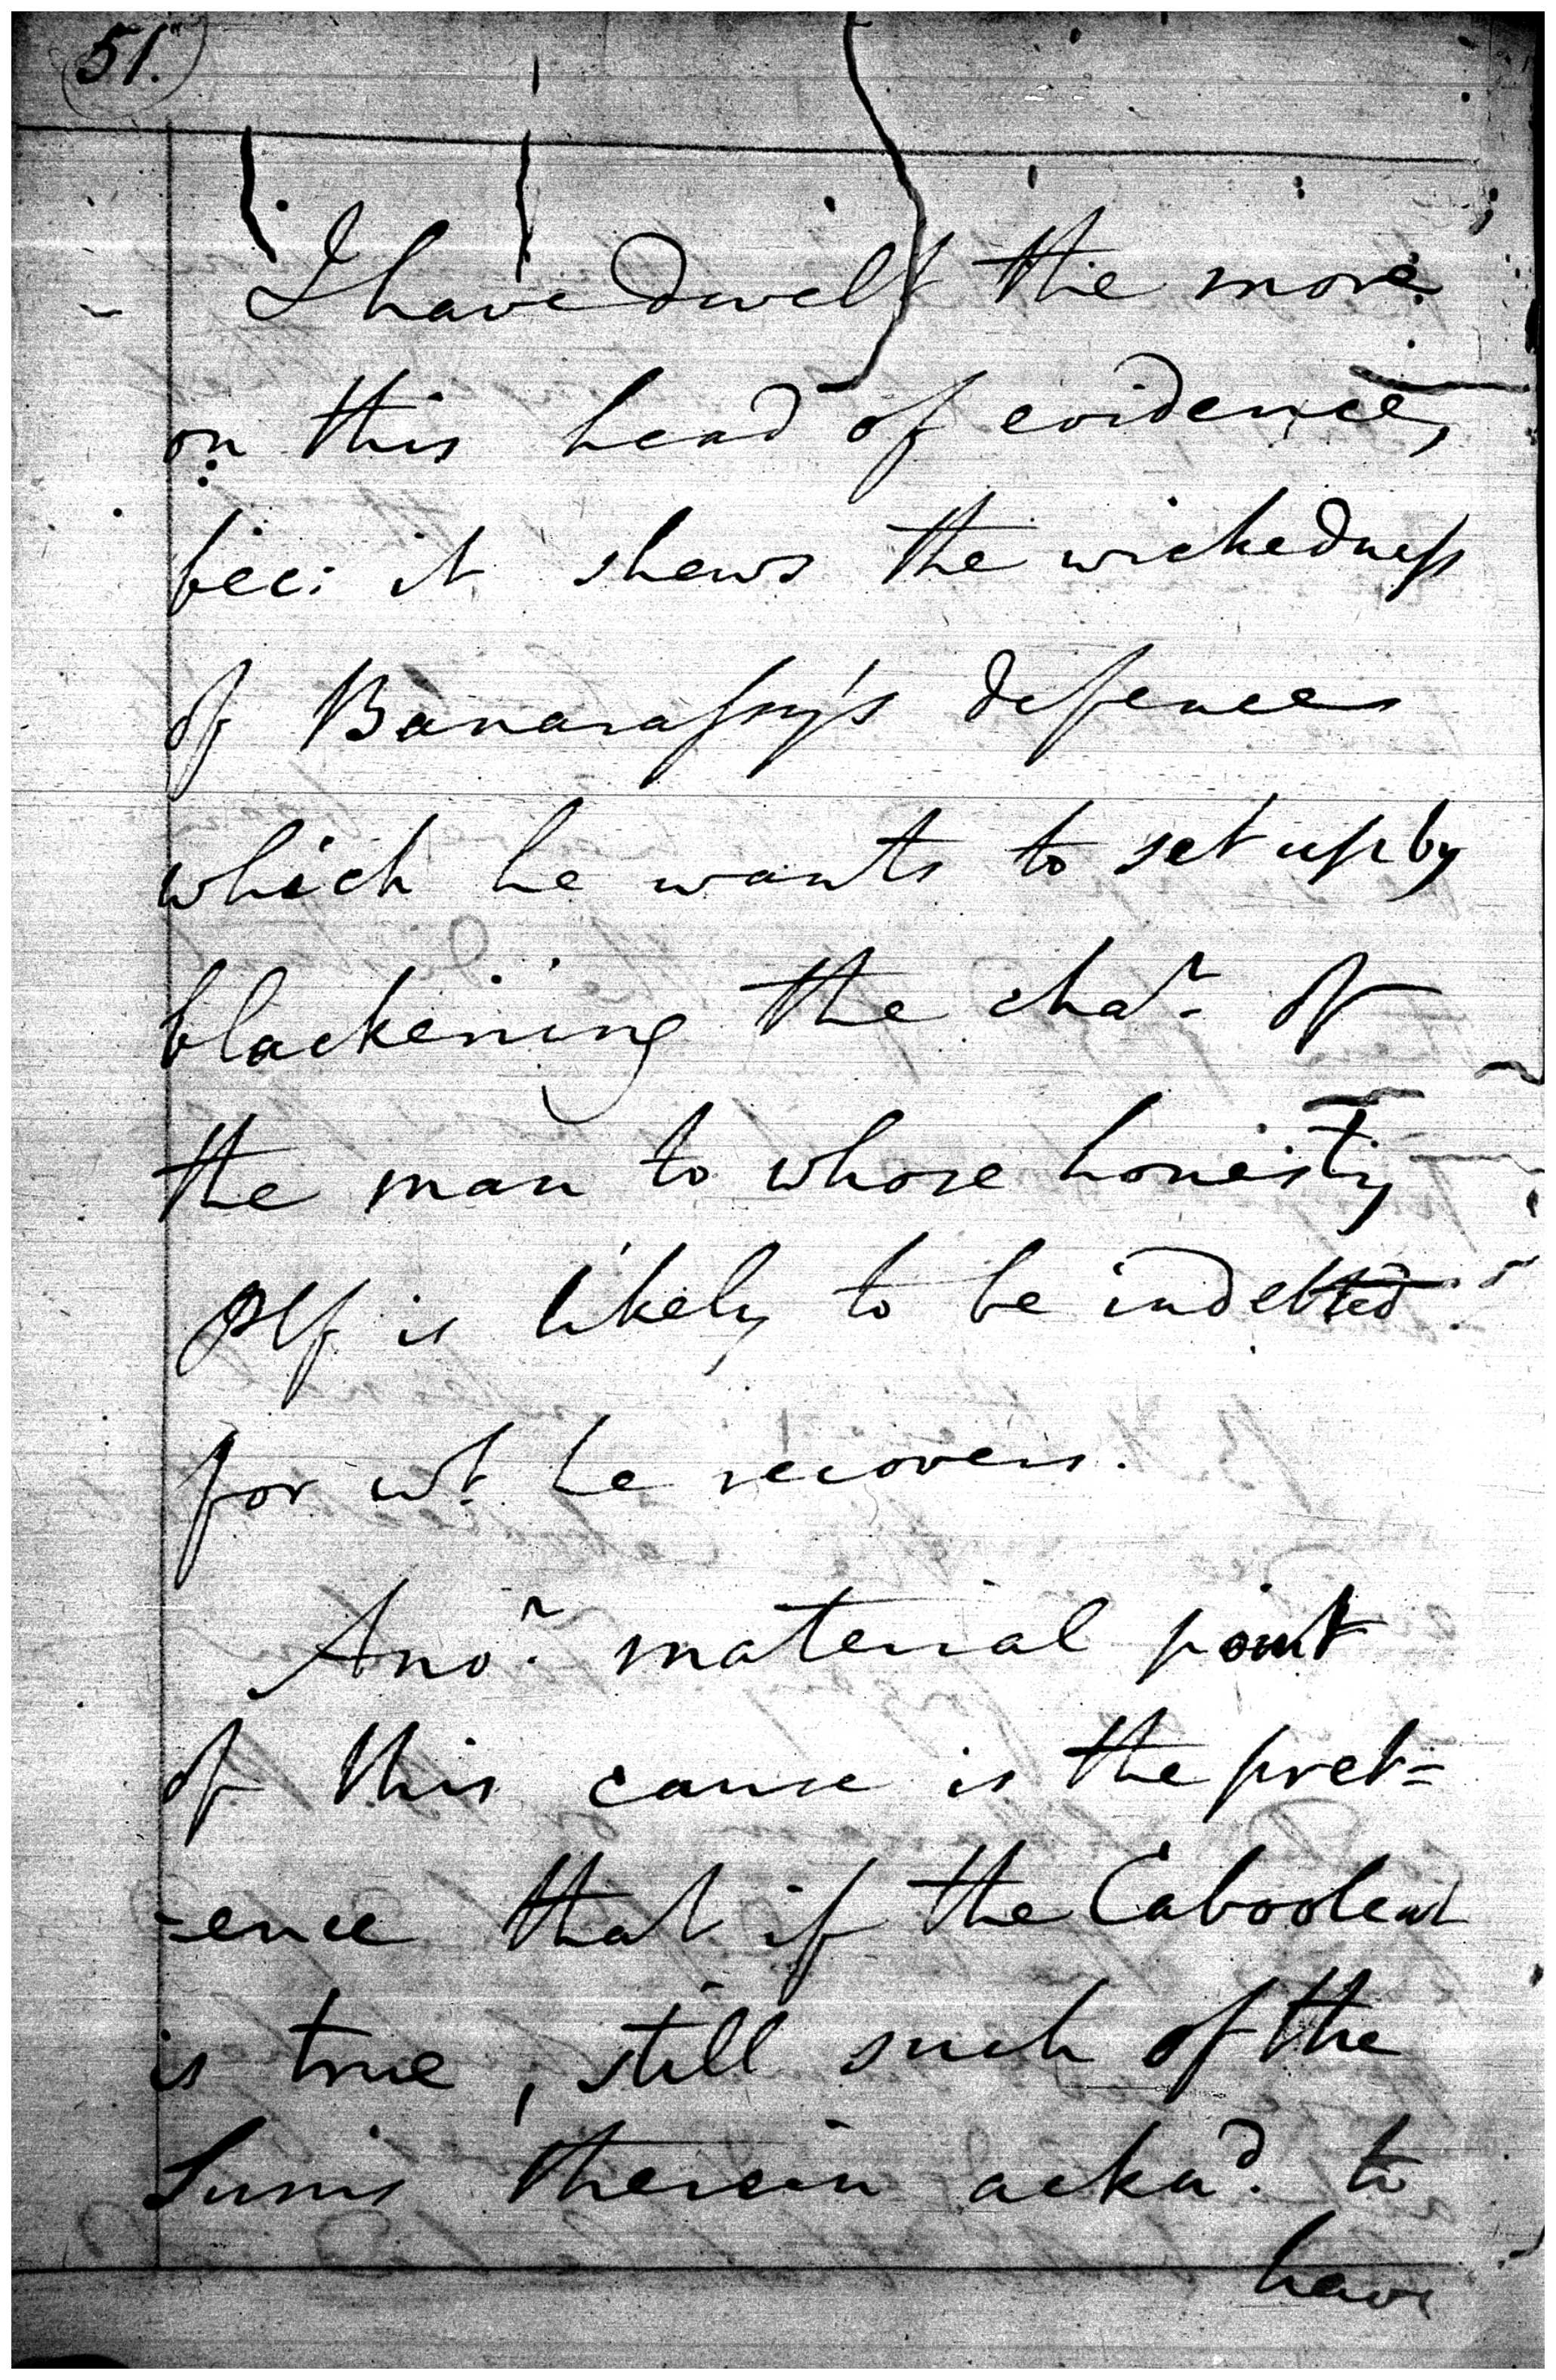 51.
I have dwelt the more
on this head of evidence,
bec: it shews the wickedness
of Banarassy's defences
which he wants to set up by
blackening the cha.r of
the man to whose honesty
Plf is likely to be indebted
for wt. he recovers.
Ano.r material point
of this cause is the pret=
=ence that if the Cabooleat
is true, still such of the
Sums therein ackd. to
have